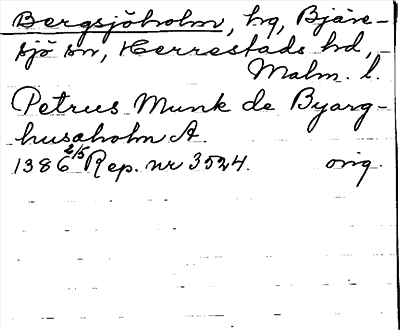 Bergsjöholm, hg, Bjäre-
sjö sn, Herrestads hd,
Malm. l.
Petrus Munk de Byarg-
husaholm A.
1386 2/5 Rep. nr 3524. orig.